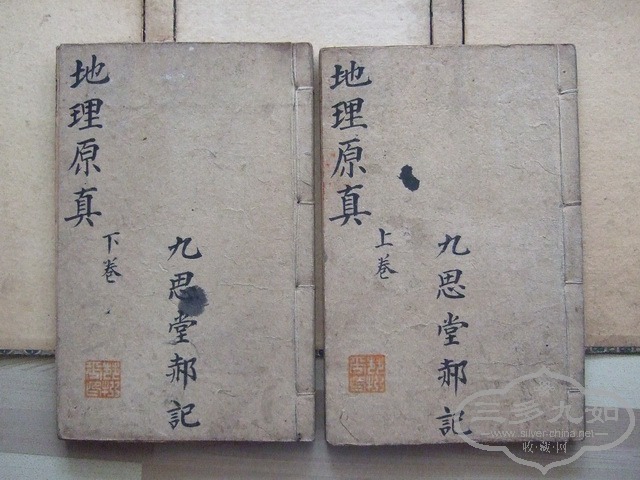 地理原真
下卷
九思堂郝記
地理原真
上卷
九思堂郝記
三多九如
www.silver-china.net
收·藏·网